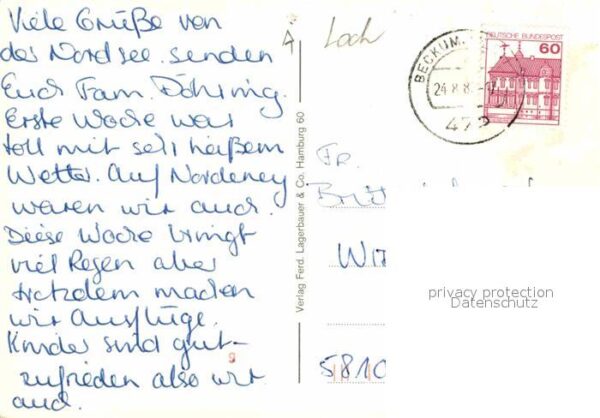 Viele Grüße von
der Nordsee senden
Euch Fam. Döhring.
Erste Woche war
toll mit sehr heißem
Wetter. Auf Norderney
waren wir auch.
Diese Woche bringt
viel Regen aber
trotzdem machen
wir Ausflüge.
Kinder sind gut-
zufrieden also wir
auch.
Verlag Ferd. Lagerbauer & Co. Hamburg 60
Loch
DEUTSCHE BUNDESPOST
60
BECKUM
24.8.8
Fr.
WIT
5810
privacy protection
Datenschutz